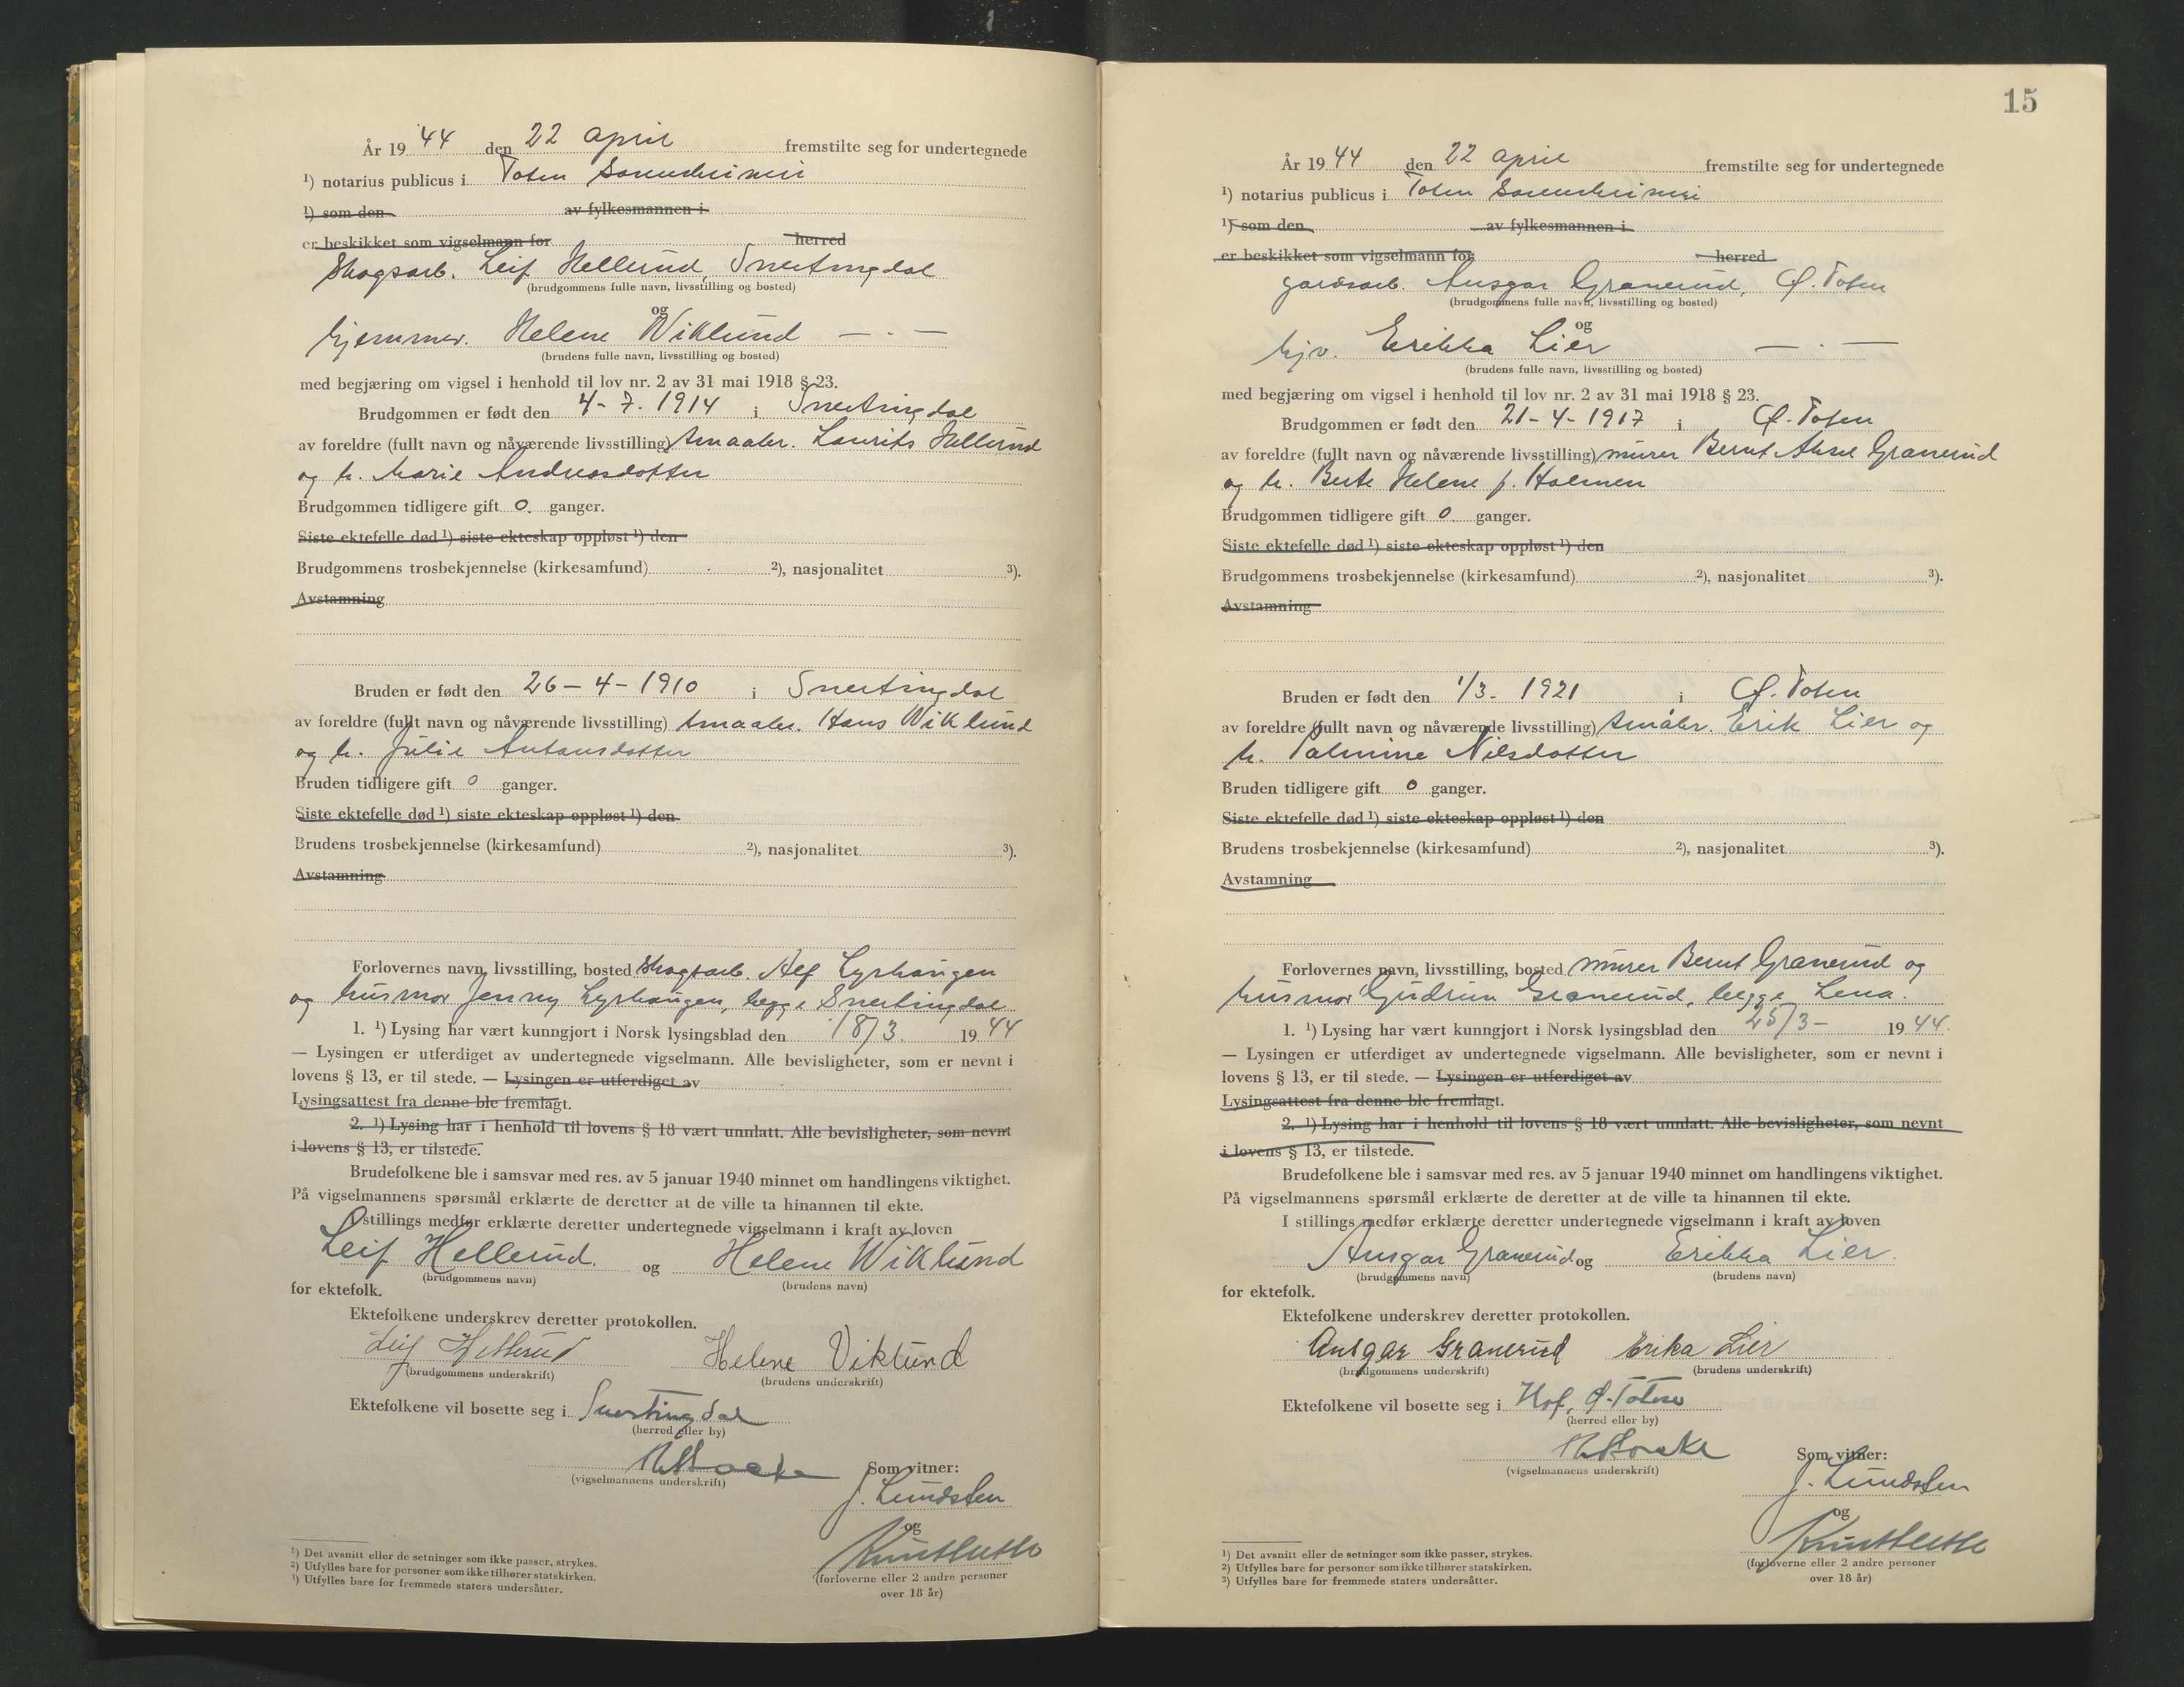 År 19 44 den 22 april fremstilte seg for undertegnede
¹) notarius publicus i Toten Sorenskriveri
¹) som den av fylkesmannen i
er beskikket som vigselmann for herred
Skogsarb. Leif Hellerud, Snertingdal
(brudgommens fulle navn, livsstilling og bosted)
og
hjemmev. Helene Wiklund — · —
(brudens fulle navn, livsstilling og bosted)
med begjæring om vigsel i henhold til lov nr. 2 av 31 mai 1918 § 23.
Brudgommen er født den 4-7.1914 i Snertingdal
av foreldre (fullt navn og nåværende livsstilling) Laurits Hellerud
og h. Marie Andreasdotter
Brudgommen tidligere gift 0. ganger.
Siste ektefelle død ¹) siste ekteskap oppløst ¹) den
Brudgommens trosbekjennelse (kirkesamfund) ²), nasjonalitet ³).
Avstamning
Bruden er født den 26-4-1910 i Snertingdal
av foreldre (fullt navn og nåværende livsstilling) Hans Wiklund
og h. Julie Antonsdotter
Bruden tidligere gift 0 ganger.
Siste ektefelle død ¹) siste ekteskap oppløst ¹) den
Brudens trosbekjennelse (kirkesamfund) ²), nasjonalitet ³).
Avstamning
Forlovernes navn, livsstilling, bosted Skogsarb. Alf Lyshaugen
og husmor Jenny Lyshaugen, begge Snertingdal
1. ¹) Lysing har vært kunngjort i Norsk lysingsblad den 18/3. 19 44
— Lysingen er utferdiget av undertegnede vigselmann. Alle bevisligheter, som er nevnt i
lovens § 13, er til stede. — Lysingen er utferdiget av
Lysingsattest fra denne ble fremlagt.
2. ¹) Lysing har i henhold til lovens § 18 vært unnlatt. Alle bevisligheter, som nevnt
i lovens § 13, er tilstede.
Brudefolkene ble i samsvar med res. av 5 januar 1940 minnet om handlingens viktighet.
På vigselmannens spørsmål erklærte de deretter at de ville ta hinannen til ekte.
I stillings medfør erklærte deretter undertegnede vigselmann i kraft av loven
Leif Hellerud. og Helene Wiklund
(brudgommens navn) (brudens navn)
for ektefolk.
Ektefolkene underskrev deretter protokollen.
Leif Hellerud Helene Viklund
(brudgommens underskrift) (brudens underskrift)
Ektefolkene vil bosette seg i Snertingdal
(herred eller by)
Som vitner:
(vigselmannens underskrift)
J. Lundsten
og
(forloverne eller 2 andre personer
over 18 år)
¹) Det avsnitt eller de setninger som ikke passer, strykes.
²) Utfylles bare for personer som ikke tilhører statskirken.
³) Utfylles bare for fremmede staters undersåtter.
15
År 19 44 den 22 april fremstilte seg for undertegnede
¹) notarius publicus i Toten Sorenskriveri
¹) som den av fylkesmannen i
er beskikket som vigselmann for herred
gardsarb. Ansgar Granerud, Ø. Toten
(brudgommens fulle navn, livsstilling og bosted)
og
hjv. Erikka Lier — · —
(brudens fulle navn, livsstilling og bosted)
med begjæring om vigsel i henhold til lov nr. 2 av 31 mai 1918 § 23.
Brudgommen er født den 21-4-1917 i Ø. Toten
av foreldre (fullt navn og nåværende livsstilling) murer Bernt Aksel Granerud
og h. Berte Helene f. Holmen
Brudgommen tidligere gift 0. ganger.
Siste ektefelle død ¹) siste ekteskap oppløst ¹) den
Brudgommens trosbekjennelse (kirkesamfund) ²), nasjonalitet ³).
Avstamning
Bruden er født den 1/3- 1921 i Ø. Toten
av foreldre (fullt navn og nåværende livsstilling) småbr. Erik Lier og
h. Palmine Nilsdotter
Bruden tidligere gift 0 ganger.
Siste ektefelle død ¹) siste ekteskap oppløst ¹) den
Brudens trosbekjennelse (kirkesamfund) ²), nasjonalitet ³).
Avstamning
Forlovernes navn, livsstilling, bosted murer Bernt Granerud og
husmor Gudrun Granerud, begge Lena.
1. ¹) Lysing har vært kunngjort i Norsk lysingsblad den 25/3- 19 44.
— Lysingen er utferdiget av undertegnede vigselmann. Alle bevisligheter, som er nevnt i
lovens § 13, er til stede. — Lysingen er utferdiget av
Lysingsattest fra denne ble fremlagt.
2. ¹) Lysing har i henhold til lovens § 18 vært unnlatt. Alle bevisligheter, som nevnt
i lovens § 13, er tilstede.
Brudefolkene ble i samsvar med res. av 5 januar 1940 minnet om handlingens viktighet.
På vigselmannens spørsmål erklærte de deretter at de ville ta hinannen til ekte.
I stillings medfør erklærte deretter undertegnede vigselmann i kraft av loven
Ansgar Granerud og Erikka Lier.
(brudgommens navn) (brudens navn)
for ektefolk.
Ektefolkene underskrev deretter protokollen.
Ansgar Granerud Erika Lier
(brudgommens underskrift) (brudens underskrift)
Ektefolkene vil bosette seg i Hof, Ø. Toten
(herred eller by)
Som vitner:
(vigselmannens underskrift)
J. Lundsten
og
(forloverne eller 2 andre personer
over 18 år)
¹) Det avsnitt eller de setninger som ikke passer, strykes.
²) Utfylles bare for personer som ikke tilhører statskirken.
³) Utfylles bare for fremmede staters undersåtter.